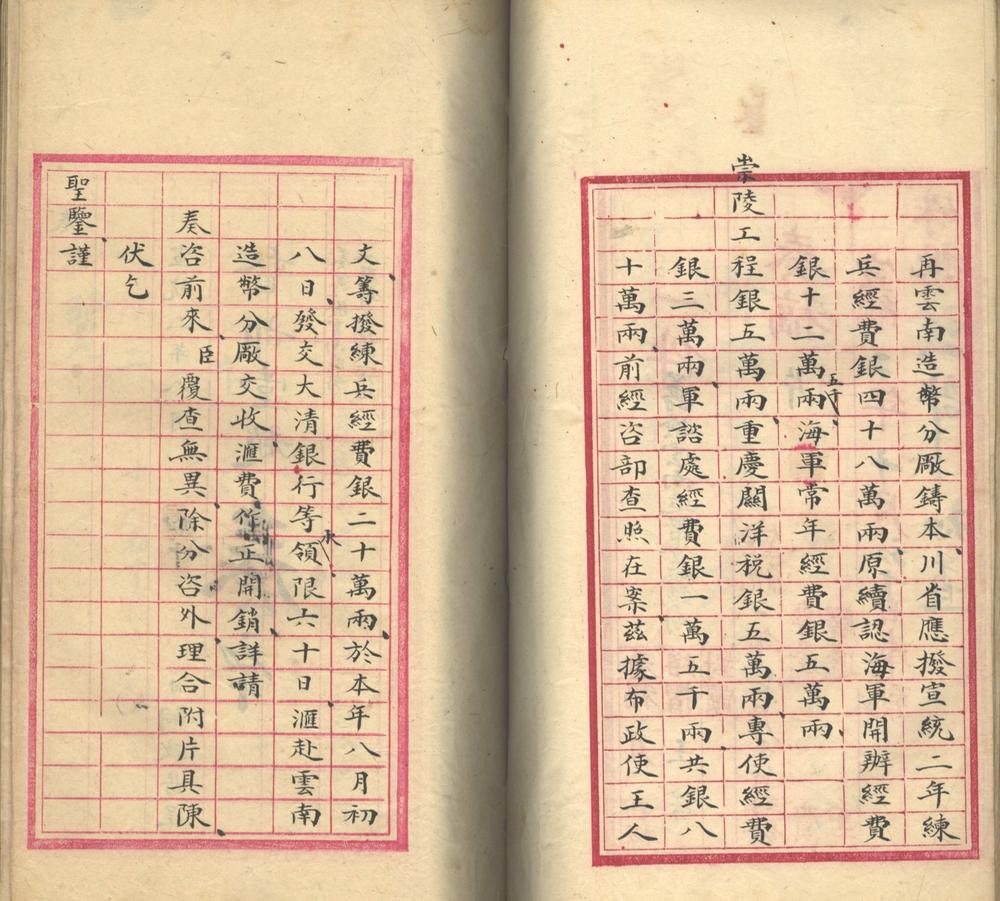 再雲南造幣分廠鑄本、川省應撥宣統二年練
兵經費銀四十八萬兩、原續認海軍開辦經費
銀十二萬五千兩、海軍常年經費銀五萬兩、
崇陵工程銀五萬兩、重慶關洋稅銀五萬兩、專使經費
銀三萬兩、軍諮處經費銀一萬五千兩、共銀八
十萬兩、前經咨部查照在案、茲據布政使王人
文、籌撥練兵經費銀二十萬兩、於本年八月初
八日、發交大清銀行等承領、限六十日、滙赴雲南
造幣分廠交收、滙費作正開銷、詳請
奏咨前來、臣覆查無異、除分咨外、理合附片具陳、
伏乞
聖鑒、謹